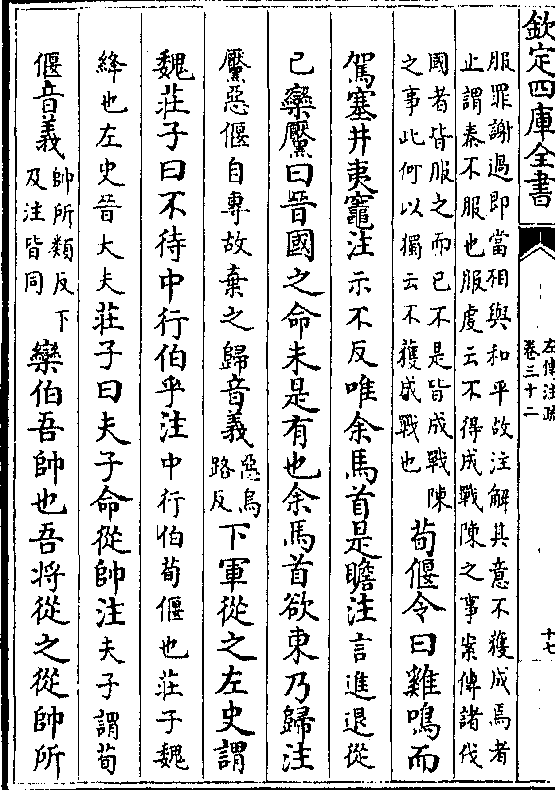 欽定四庫全書
左傳注疏
卷三十二
十七
服罪謝過即當相與和平故注解其意不獲成焉者
止謂秦不服也服虔云不得成戰陳之事案傳諸伐
國者皆服之而已不是皆成戰陳
之事此何以獨云不獲成戰也
荀偃令曰雞鳴而
駕塞井夷竈注示不反唯余馬首是瞻注言進退從
己欒黶曰晉國之命未是有也余馬首欲東乃歸注
黶惡偃自專故棄之歸音義惡烏路反下軍從之左史謂
魏莊子曰不待中行伯乎注中行伯荀偃也莊子魏
絳也左史晉大夫莊子曰夫子命從帥注夫子謂荀
偃音義帥所類反下及注皆同欒伯吾帥也吾將從之從帥所